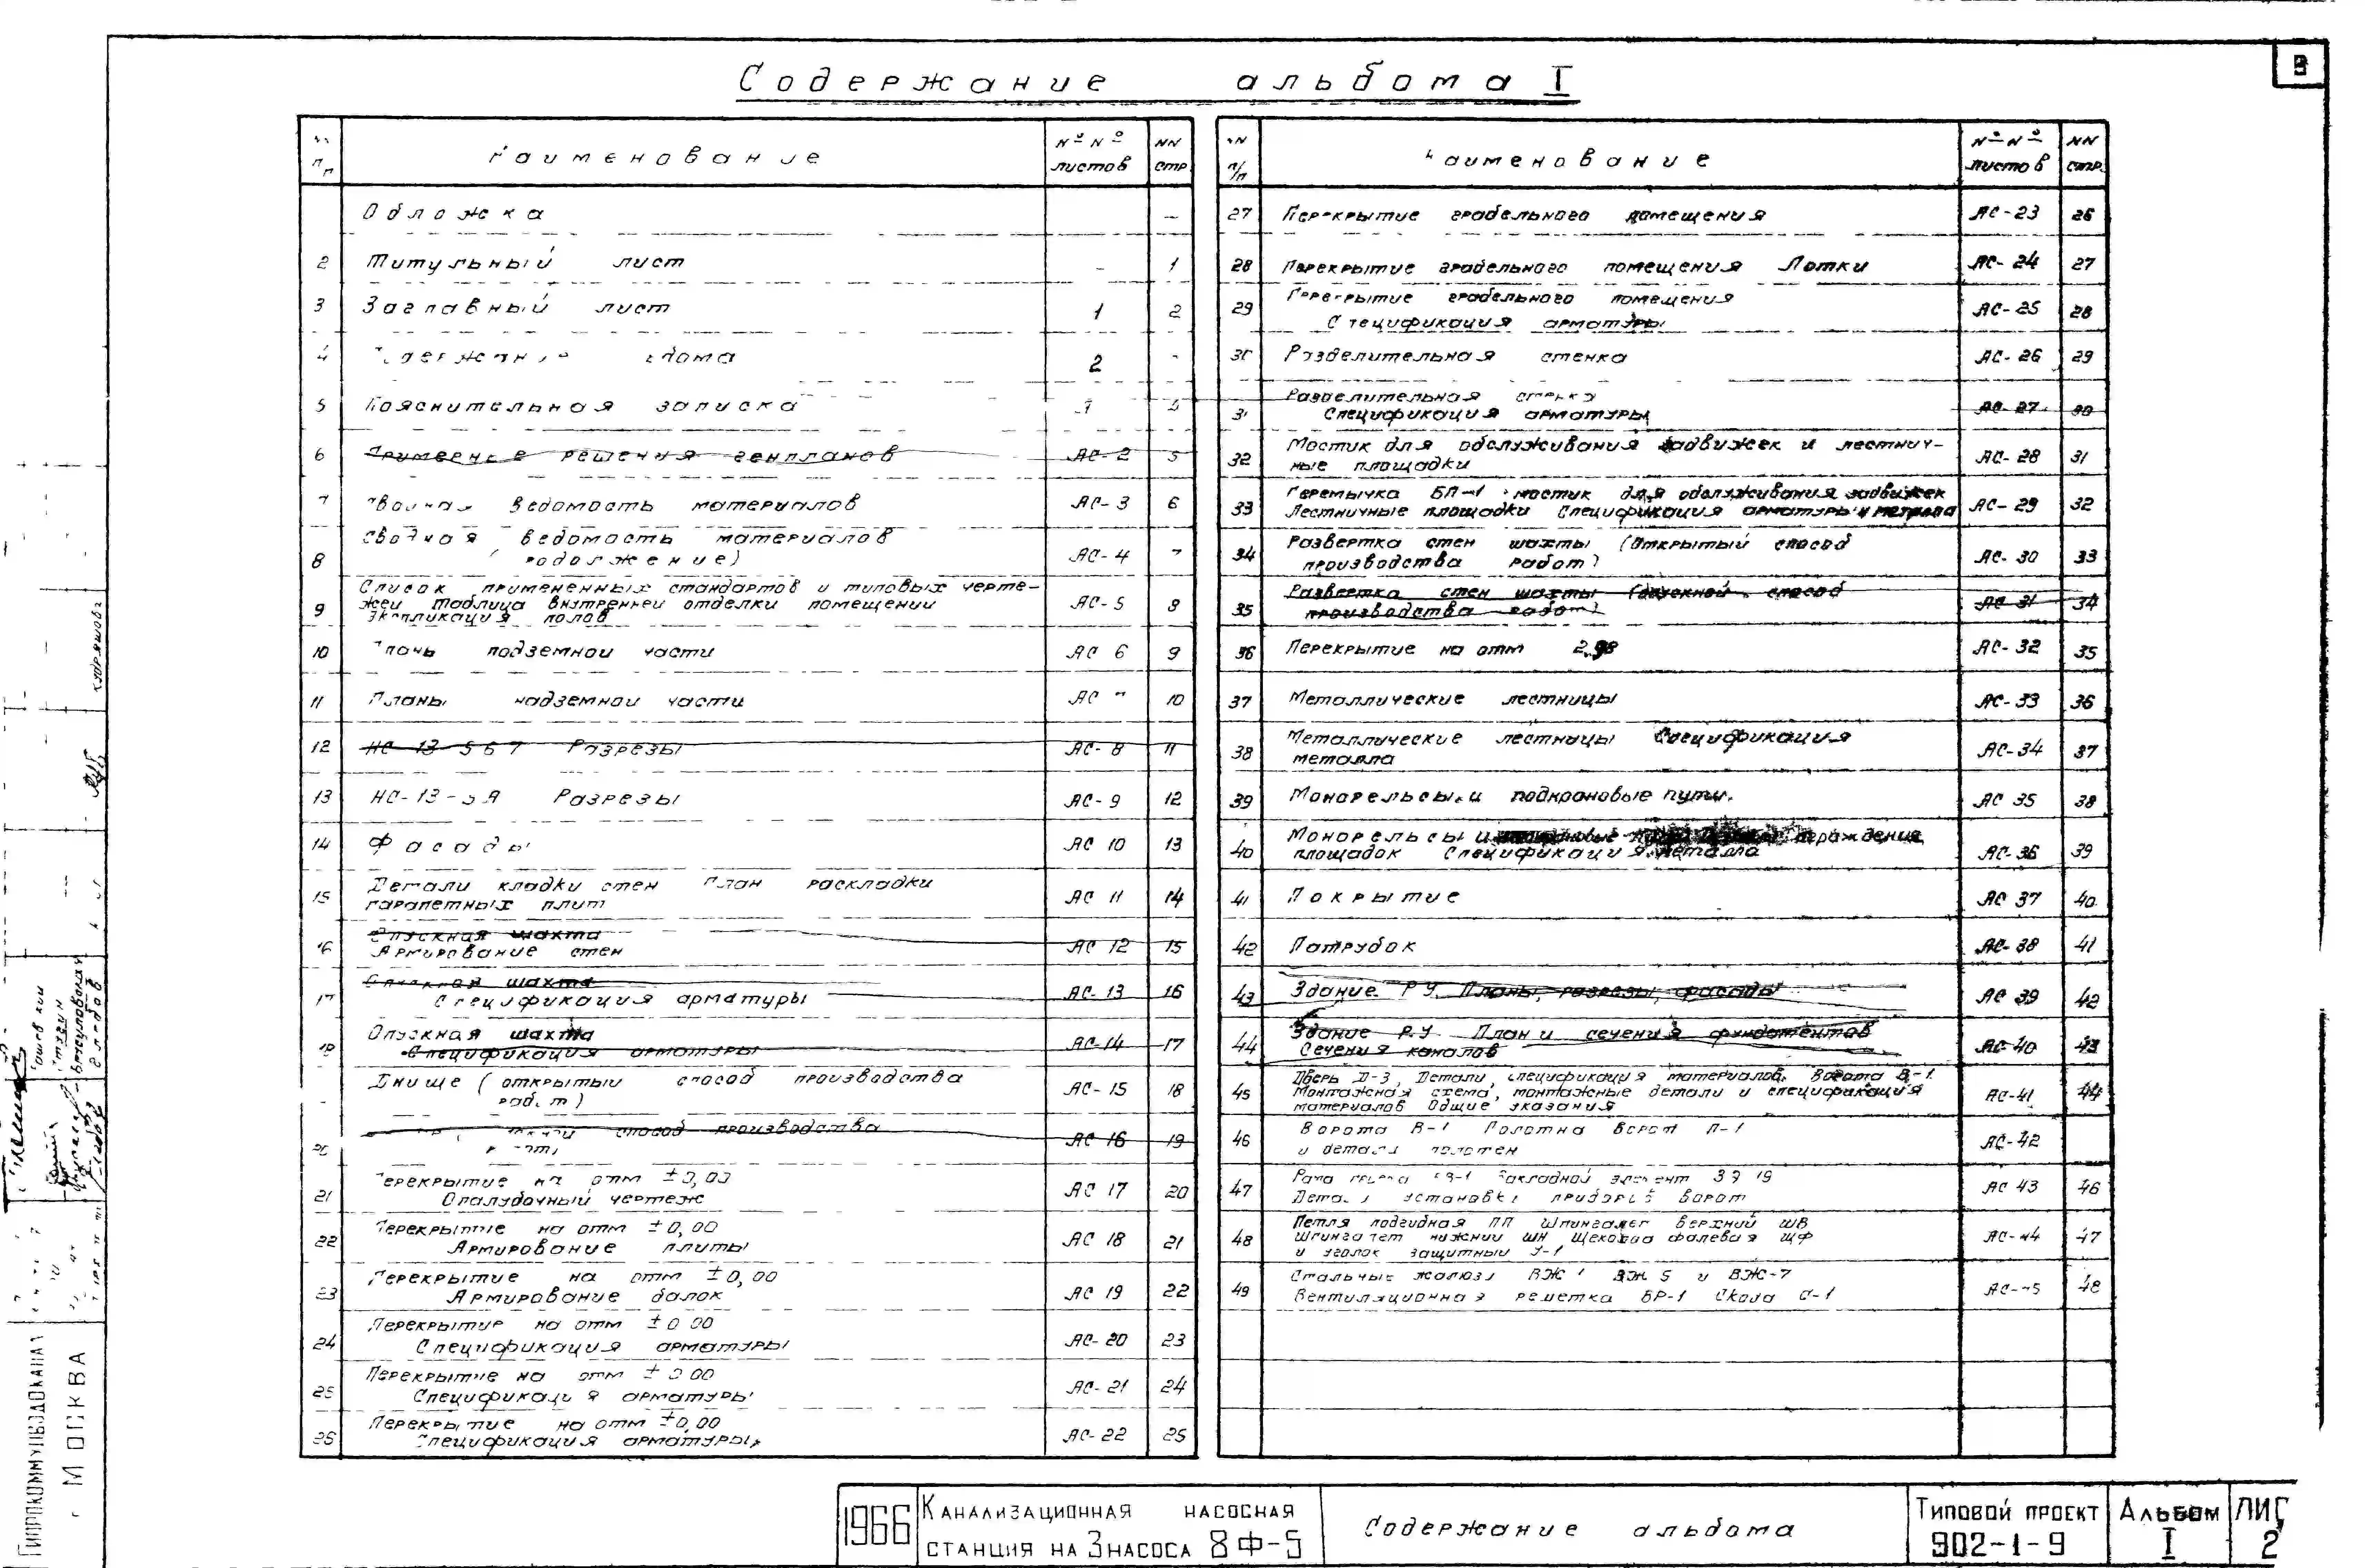 3
Содержание альбома I
п п
Наименование
№ № листов
NN стр.
Обложка —
2 Титульный лист - 1
3 Заглавный лист 1 2
4 2 -
5 Пояснительная записка
6 Примерные решения генпланов АС-2 5
7 Сводная ведомость материалов АС-3 6
Сводная ведомость материалов
8 АС-4 7
Список примененных стандартов и типовых черте-
9 жей Таблица внутренней отделки помещений АС-5 8
Экспликация полов
10 подземной части АС 6 9
11 Планы надземной части АС 10
12 НС-13-5 6 7 Разрезы АС-8 11
13 НС-13-5А Разрезы АС-9 12
14 Фасады АС 10 13
Детали кладки стен План раскладки
15 парапетных плит АС 11 14
Опускная шахта
16 Армирование стен АС 12 15
Опускная шахта
17 Спецификация арматуры АС-13 16
Опускная шахта
18 Спецификация арматуры АС-14 17
Днище (открытый способ производства
работ) АС-15 18
способ производства
20 АС 16 19
Перекрытие на отм ±0,00
21 Опалубочный чертеж АС 17 20
Перекрытие на отм ±0,00
22 Армирование плиты АС 18 21
Перекрытие на отм ±0,00
23 Армирование балок АС 19 22
Перекрытие на отм ±0 00
24 Спецификация арматуры АС-20 23
Перекрытие на отм ±0 00
25 Спецификация арматуры АС-21 24
Перекрытие на отм ±0,00
26 Спецификация арматуры АС-22 25
п/п
Наименование
№ № листов
NN стр.
27 Перекрытие грабельного помещения АС-23 26
28 Перекрытие грабельного помещения Лотки АС-24 27
Перекрытие грабельного помещения
29 Спецификация арматуры АС-25 28
30 Разделительная стенка АС-26 29
Разделительная стенка
31 Спецификация арматуры АС-27 30
Мостик для обслуживания задвижек и лестнич-
32 ные площадки АС-28 31
Перемычка БП-1 мостик для обслуживания задвижек
33 Лестничные площадки Спецификация арматуры и металла АС-29 32
Развертка стен шахты (Открытый способ
34 производства работ) АС-30 33
Развертка стен шахты (опускной способ
35 производства работ) АС 31 34
36 Перекрытие на отм 2.98 АС-32 35
37 Металлические лестницы АС-33 36
Металлические лестницы Спецификация
38 металла АС-34 37
39 Монорельсы и подкрановые пути. АС 35 38
Монорельсы и ограждение
40 площадок Спецификация металла АС-36 39
41 Покрытие АС 37 40
42 Патрубок АС-38 41
43 Здание Р У. Планы, разрезы, фасады АС 39 42
Здание Р.У План и сечения фундаментов
44 Сечения каналов АС-40 43
Дверь Д-3, Детали, спецификация материалов. Ворота В-1.
45 Монтажная схема, монтажные детали и спецификация АС-41 44
материалов Общие указания
Ворота В-1 Полотна ворот П-1
46 и детали полотен АС-42
Рама Закладной элемент ЗЭ 19
47 Детали установки приборов ворот АС 43 46
Петля подвидная ПП Шпингалет верхний ШВ
48 Шпингалет нижний ШН Щеколда фалевая ЩФ АС-44 47
и уголок защитный У-1
Стальные жалюзи ВЖ 1 ВЖ 5 и ВЖ-7
49 Вентиляционная решетка ВР-1 Скоба С-1 48
ГИПРОКОММУНВОДОКАНАЛ
г МОСКВА
1966
Канализационная насосная
станция на 3 насоса 8Ф-5
Содержание альбома
Типовой проект
902-1-9
Альбом
I
ЛИС
2